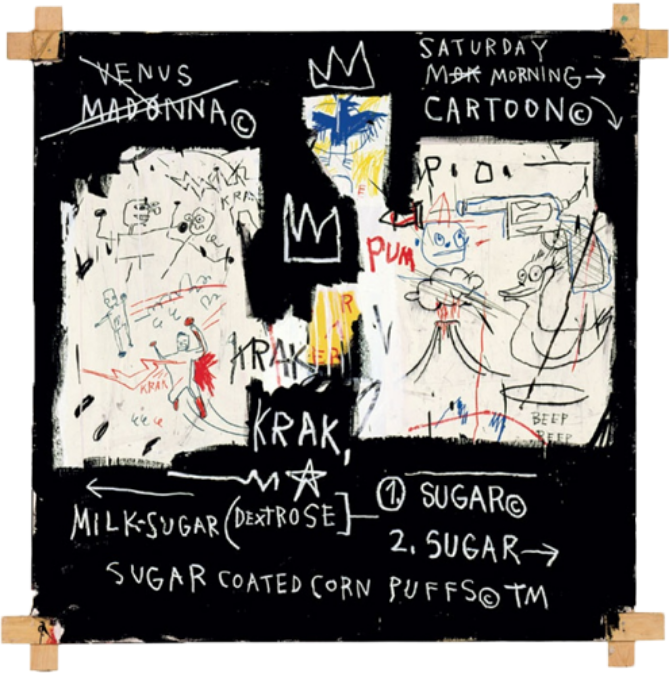 VENUS
MADONNA©
SATURDAY
MORNING→
CARTOON©
KRAK
P.O.
E
PUM
R
KRAK
KRAK
BEEP
BEEP
KRAK,
1. SUGAR©
MILK-SUGAR (DEXTROSE]
2. SUGAR→
SUGAR COATED CORN PUFFS© TM